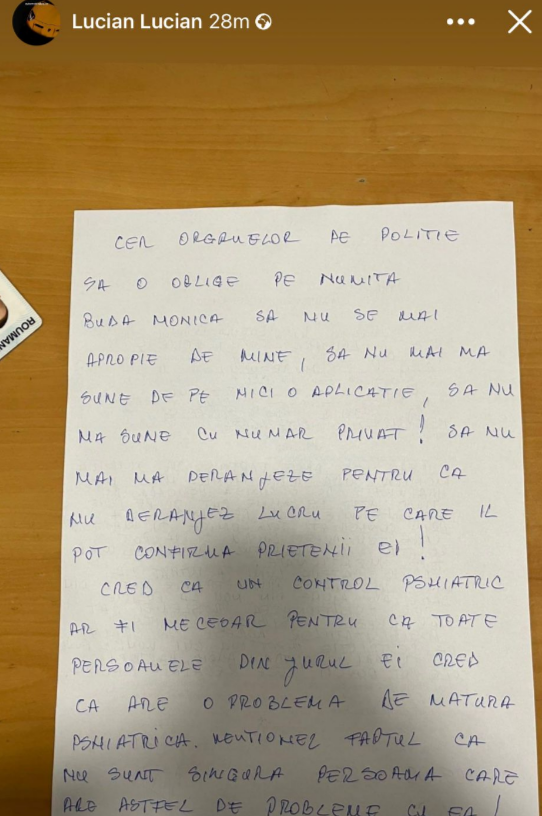 Lucian Lucian 28m
CER ORGANELOR DE POLITIE
SA O OBLIGE PE NUMITA
BUDA MONICA SA NU SE MAI
APROPIE DE MINE, SA NU MAI MA
SUNE DE PE NICI O APLICATIE, SA NU
MA SUNE CU NUMAR PRIVAT! SA NU
MAI MA DERANJEZE PENTRU CA
NU DERANJEZ LUCRU PE CARE IL
POT CONFIRMA PRIETENII EI!
CRED CA UN CONTROL PSHIATRIC
AR FI NECESAR PENTRU CA TOATE
PERSOANELE DIN JURUL EI CRED
CA ARE O PROBLEMA DE NATURA
PSHIATRICA. MENTIONEZ FAPTUL CA
NU SUNT SINGURA PERSOANA CARE
ARE ASTFEL DE PROBLEME CU EA!
ROUMAN